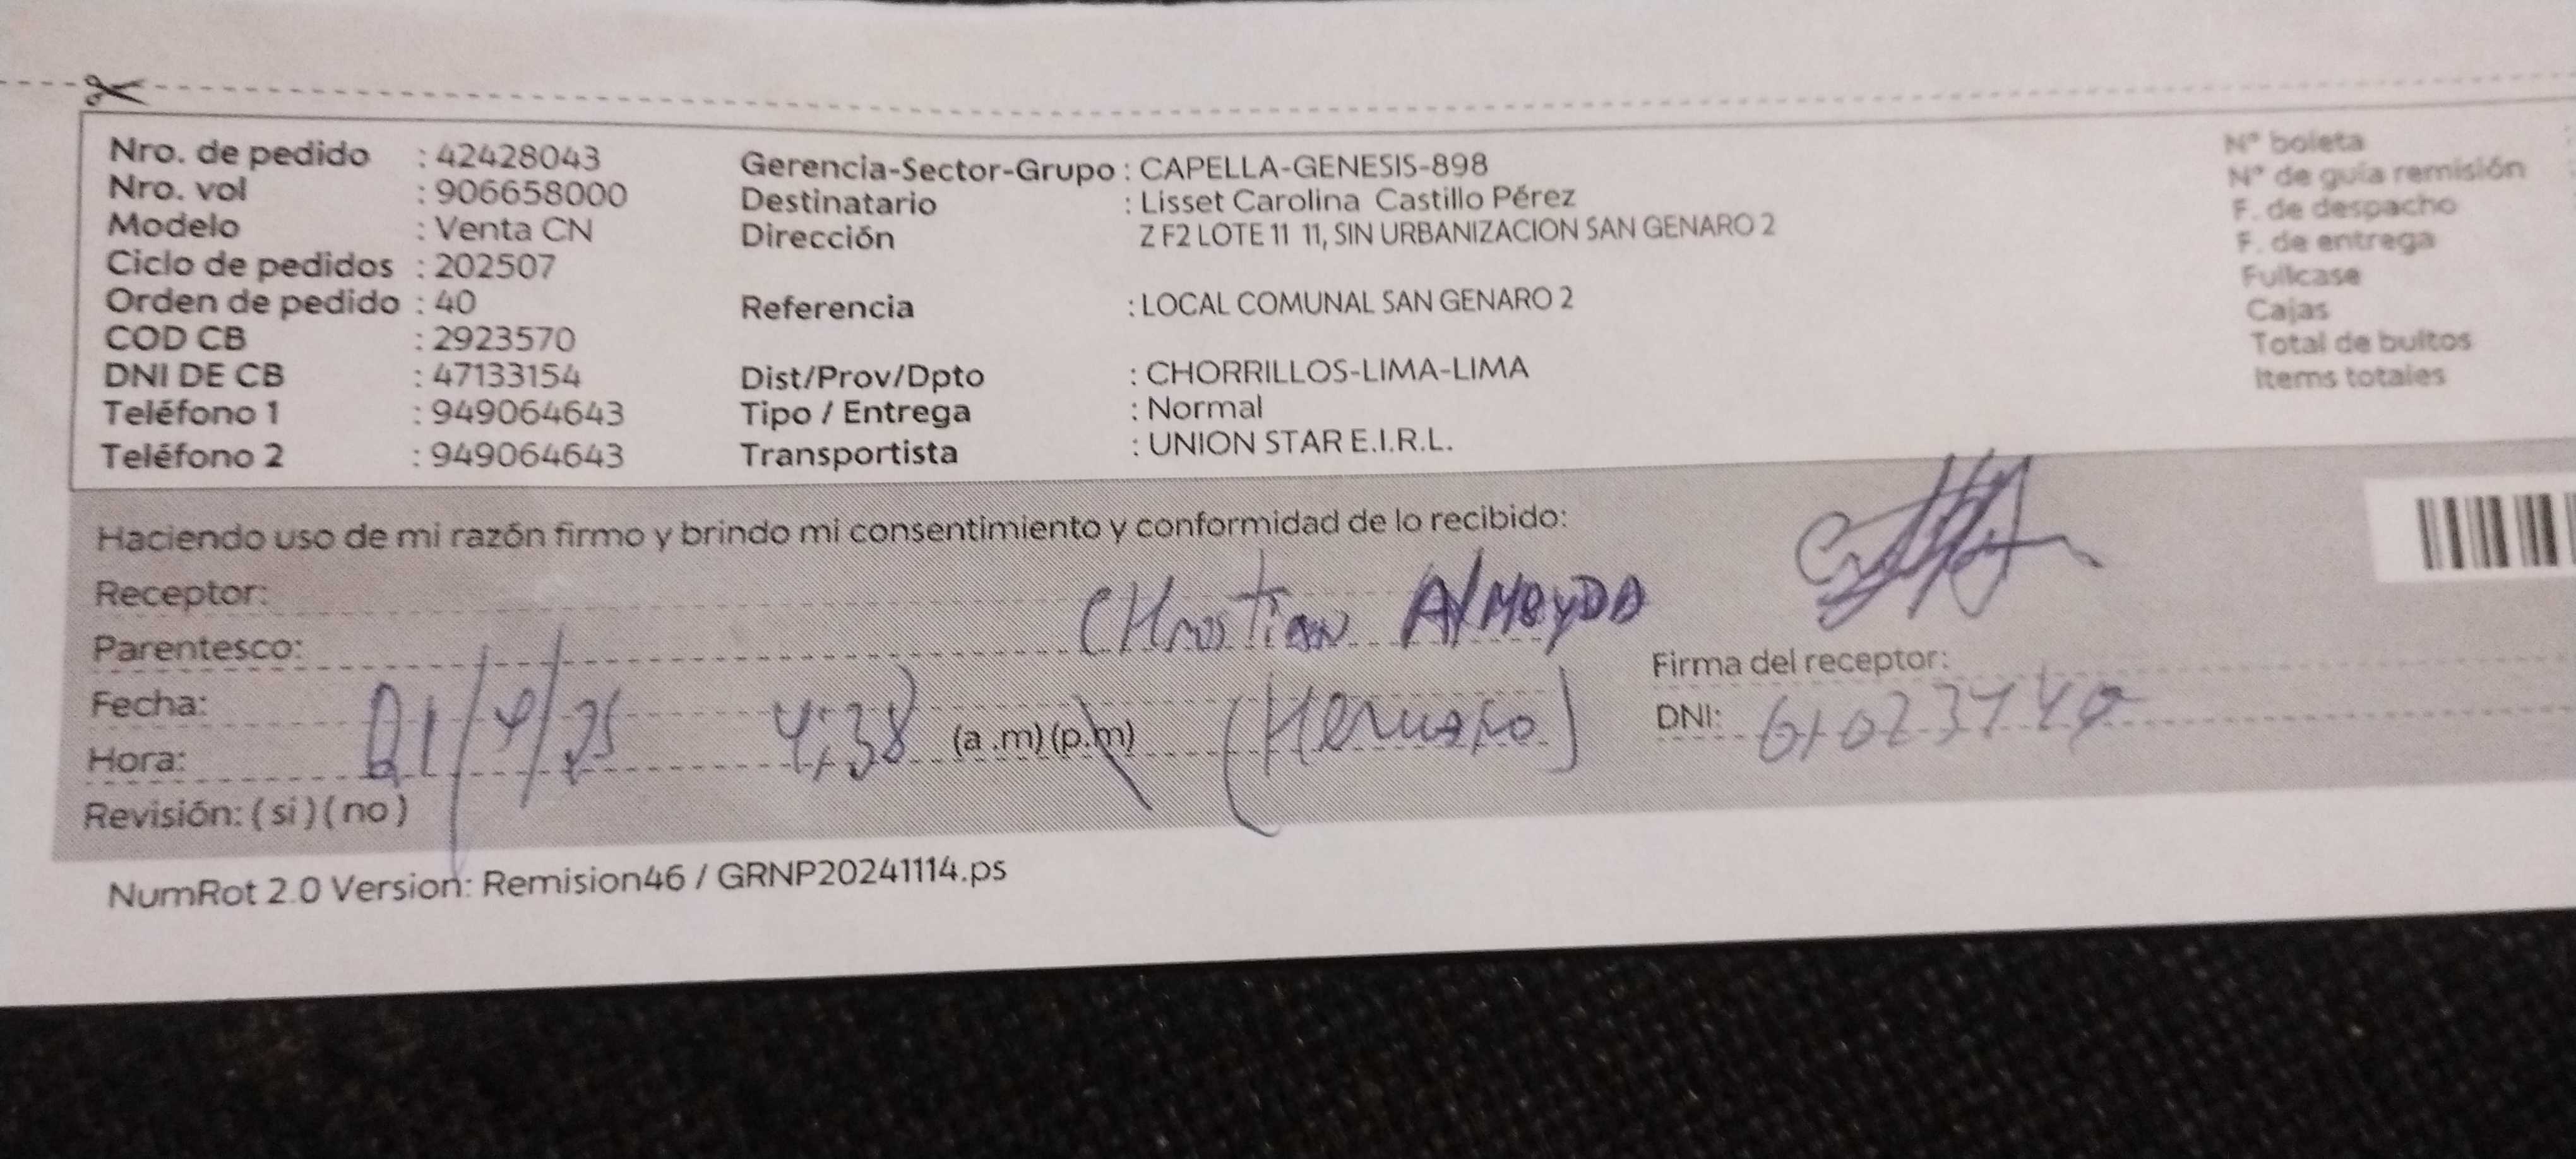 Nro. de pedido : 42428043
Nro. vol : 906658000
Modelo : Venta CN
Ciclo de pedidos : 202507
Orden de pedido : 40
COD CB : 2923570
DNI DE CB : 47133154
Teléfono 1 : 949064643
Teléfono 2 : 949064643
Gerencia-Sector-Grupo : CAPELLA-GENESIS-898
Destinatario : Lisset Carolina Castillo Pérez
Dirección Z F2 LOTE 11 11, SIN URBANIZACION SAN GENARO 2
Referencia : LOCAL COMUNAL SAN GENARO 2
Dist/Prov/Dpto : CHORRILLOS-LIMA-LIMA
Tipo / Entrega : Normal
Transportista : UNION STAR E.I.R.L.
N° boleta
N° de guía remisión
F. de despacho
F. de entrega
Fullcase
Cajas
Total de bultos
Items totales
Haciendo uso de mi razón firmo y brindo mi consentimiento y conformidad de lo recibido:
Receptor:
CHristian AlmeyDA
Parentesco:
Firma del receptor:
Fecha:
21/4/25 4:38 (a .m) (p.m) (Hermano)
DNI:
Hora:
Revisión: ( si ) ( no )
NumRot 2.0 Version: Remision46 / GRNP20241114.ps